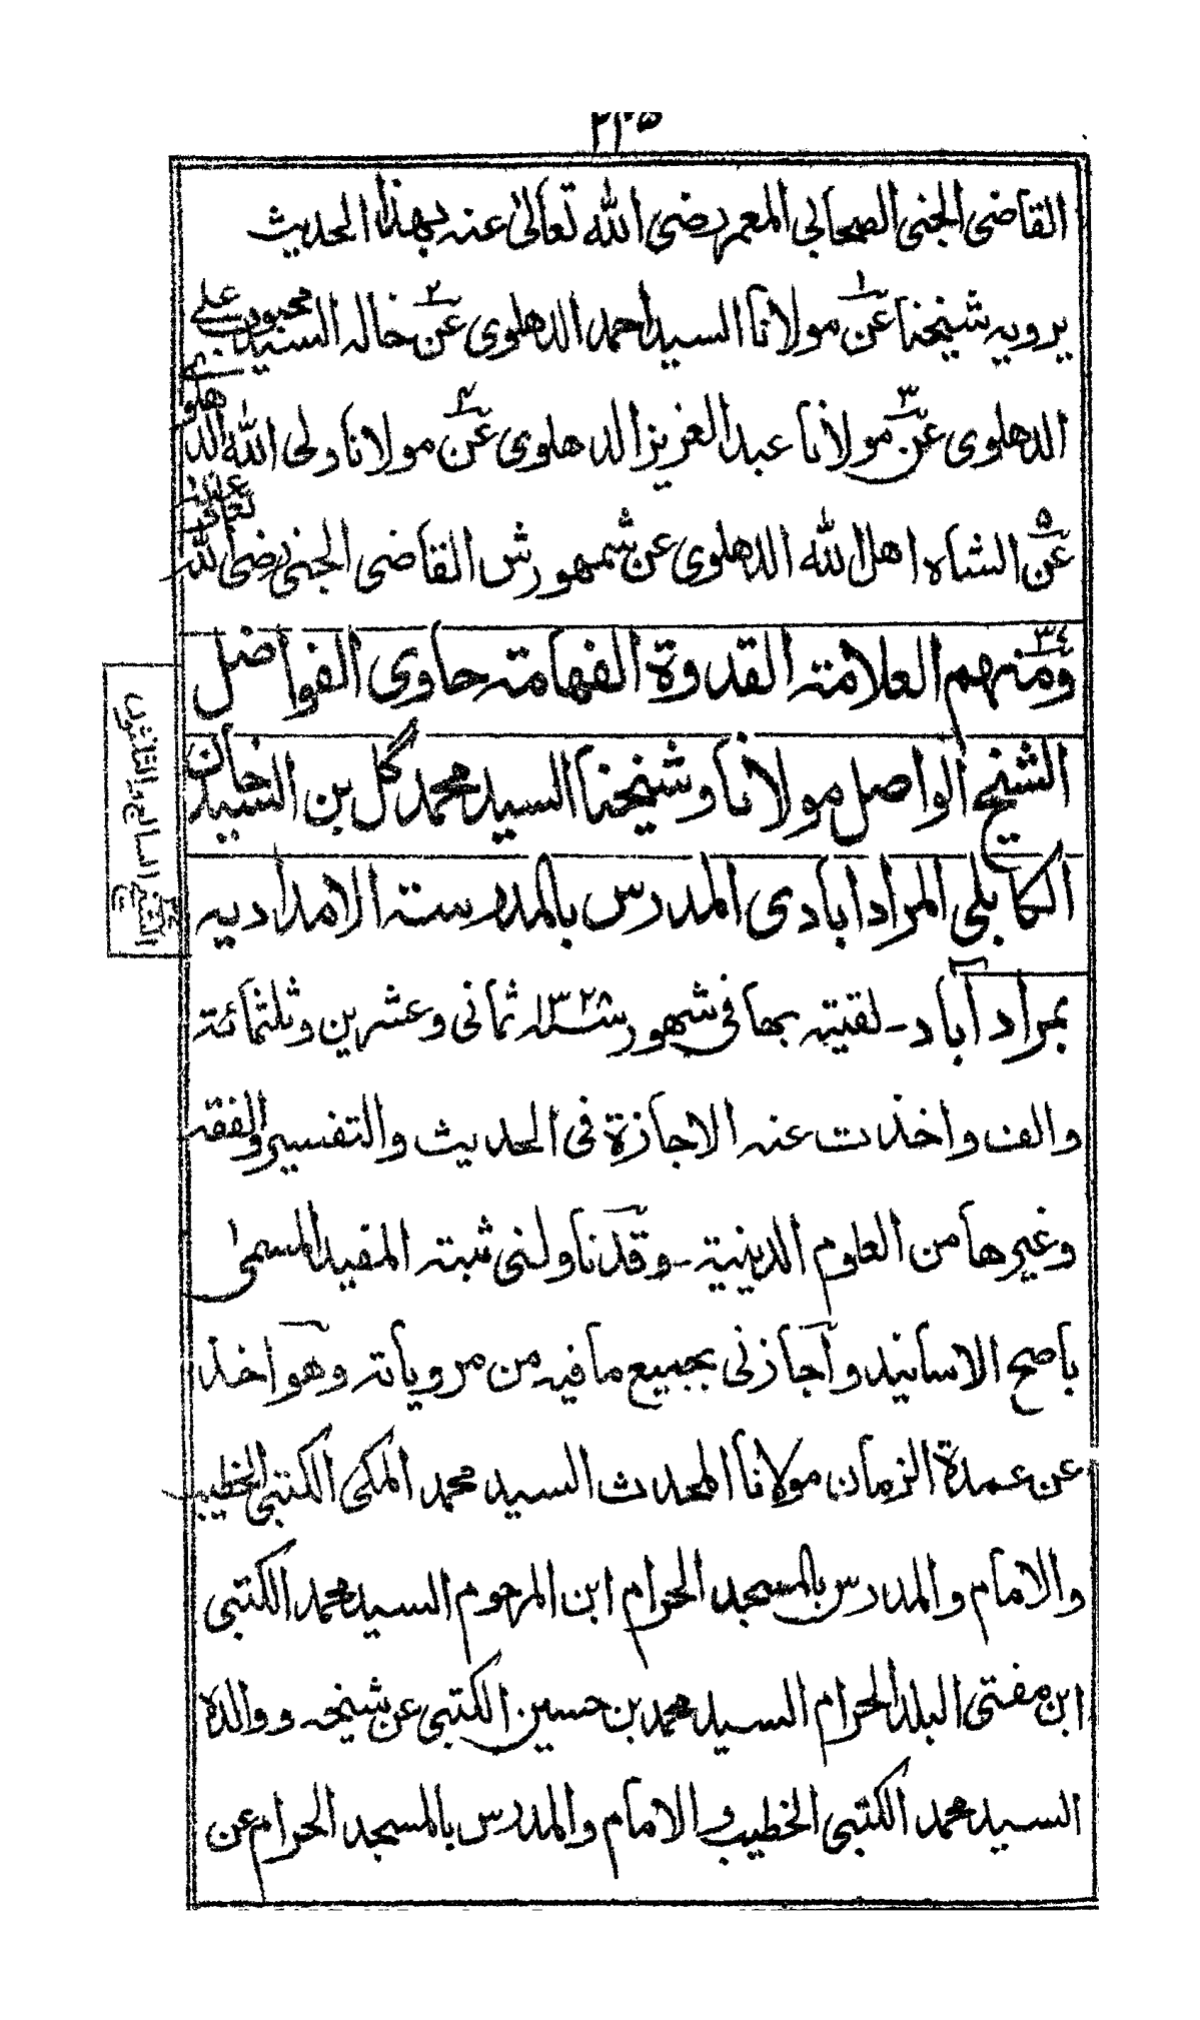 القاضی الجنی الصحابی المعمر رضی الله تعالیٰ عنه بهذا الحدیث
یرویه شیخنا عن۱ مولانا السید احمد الدهلوی عن۲ خاله السید محبوب علی
الدهلوی عن۳ مولانا عبد العزیز الدهلوی عن۴ مولانا ولی الله الدهلوی
عن۵ الشاه اهل الله الدهلوی عن شمهورش القاضی الجنی رضی الله تعالیٰ عنه
۳٤ ومنهم العلامة القدوة الفهامة حاوی الفواضل
الشیخ الواصل مولانا وشیخنا السید محمد گل بن السید خان
الکابلی المرادابادی المدرس بالمدرسة الامدادیه
بمراد آباد - لقیته بها فی شهور سنة ۱۳۲۸ ثمانی وعشرین وثلثمائة
والف واخذت عنه الاجازة فی الحدیث والتفسیر والفقه
وغیرها من العلوم الدینیة - وقد ناولنی ثبته المفید المسمی
باصح الاسانید وأجازنی بجمیع ما فیه من مرویاته وهو اخذ
عن عمدة الزمان مولانا المحدث السید محمد المکی الکتبی الخطیب
والامام والمدرس بالمسجد الحرام ابن المرحوم السید محمد الکتبی
ابن مفتی البلد الحرام السید محمد بن حسین الکتبی عن شیخه ووالده
السید محمد الکتبی الخطیب والامام والمدرس بالمسجد الحرام عن
الشیخ الرابع والثلاثون